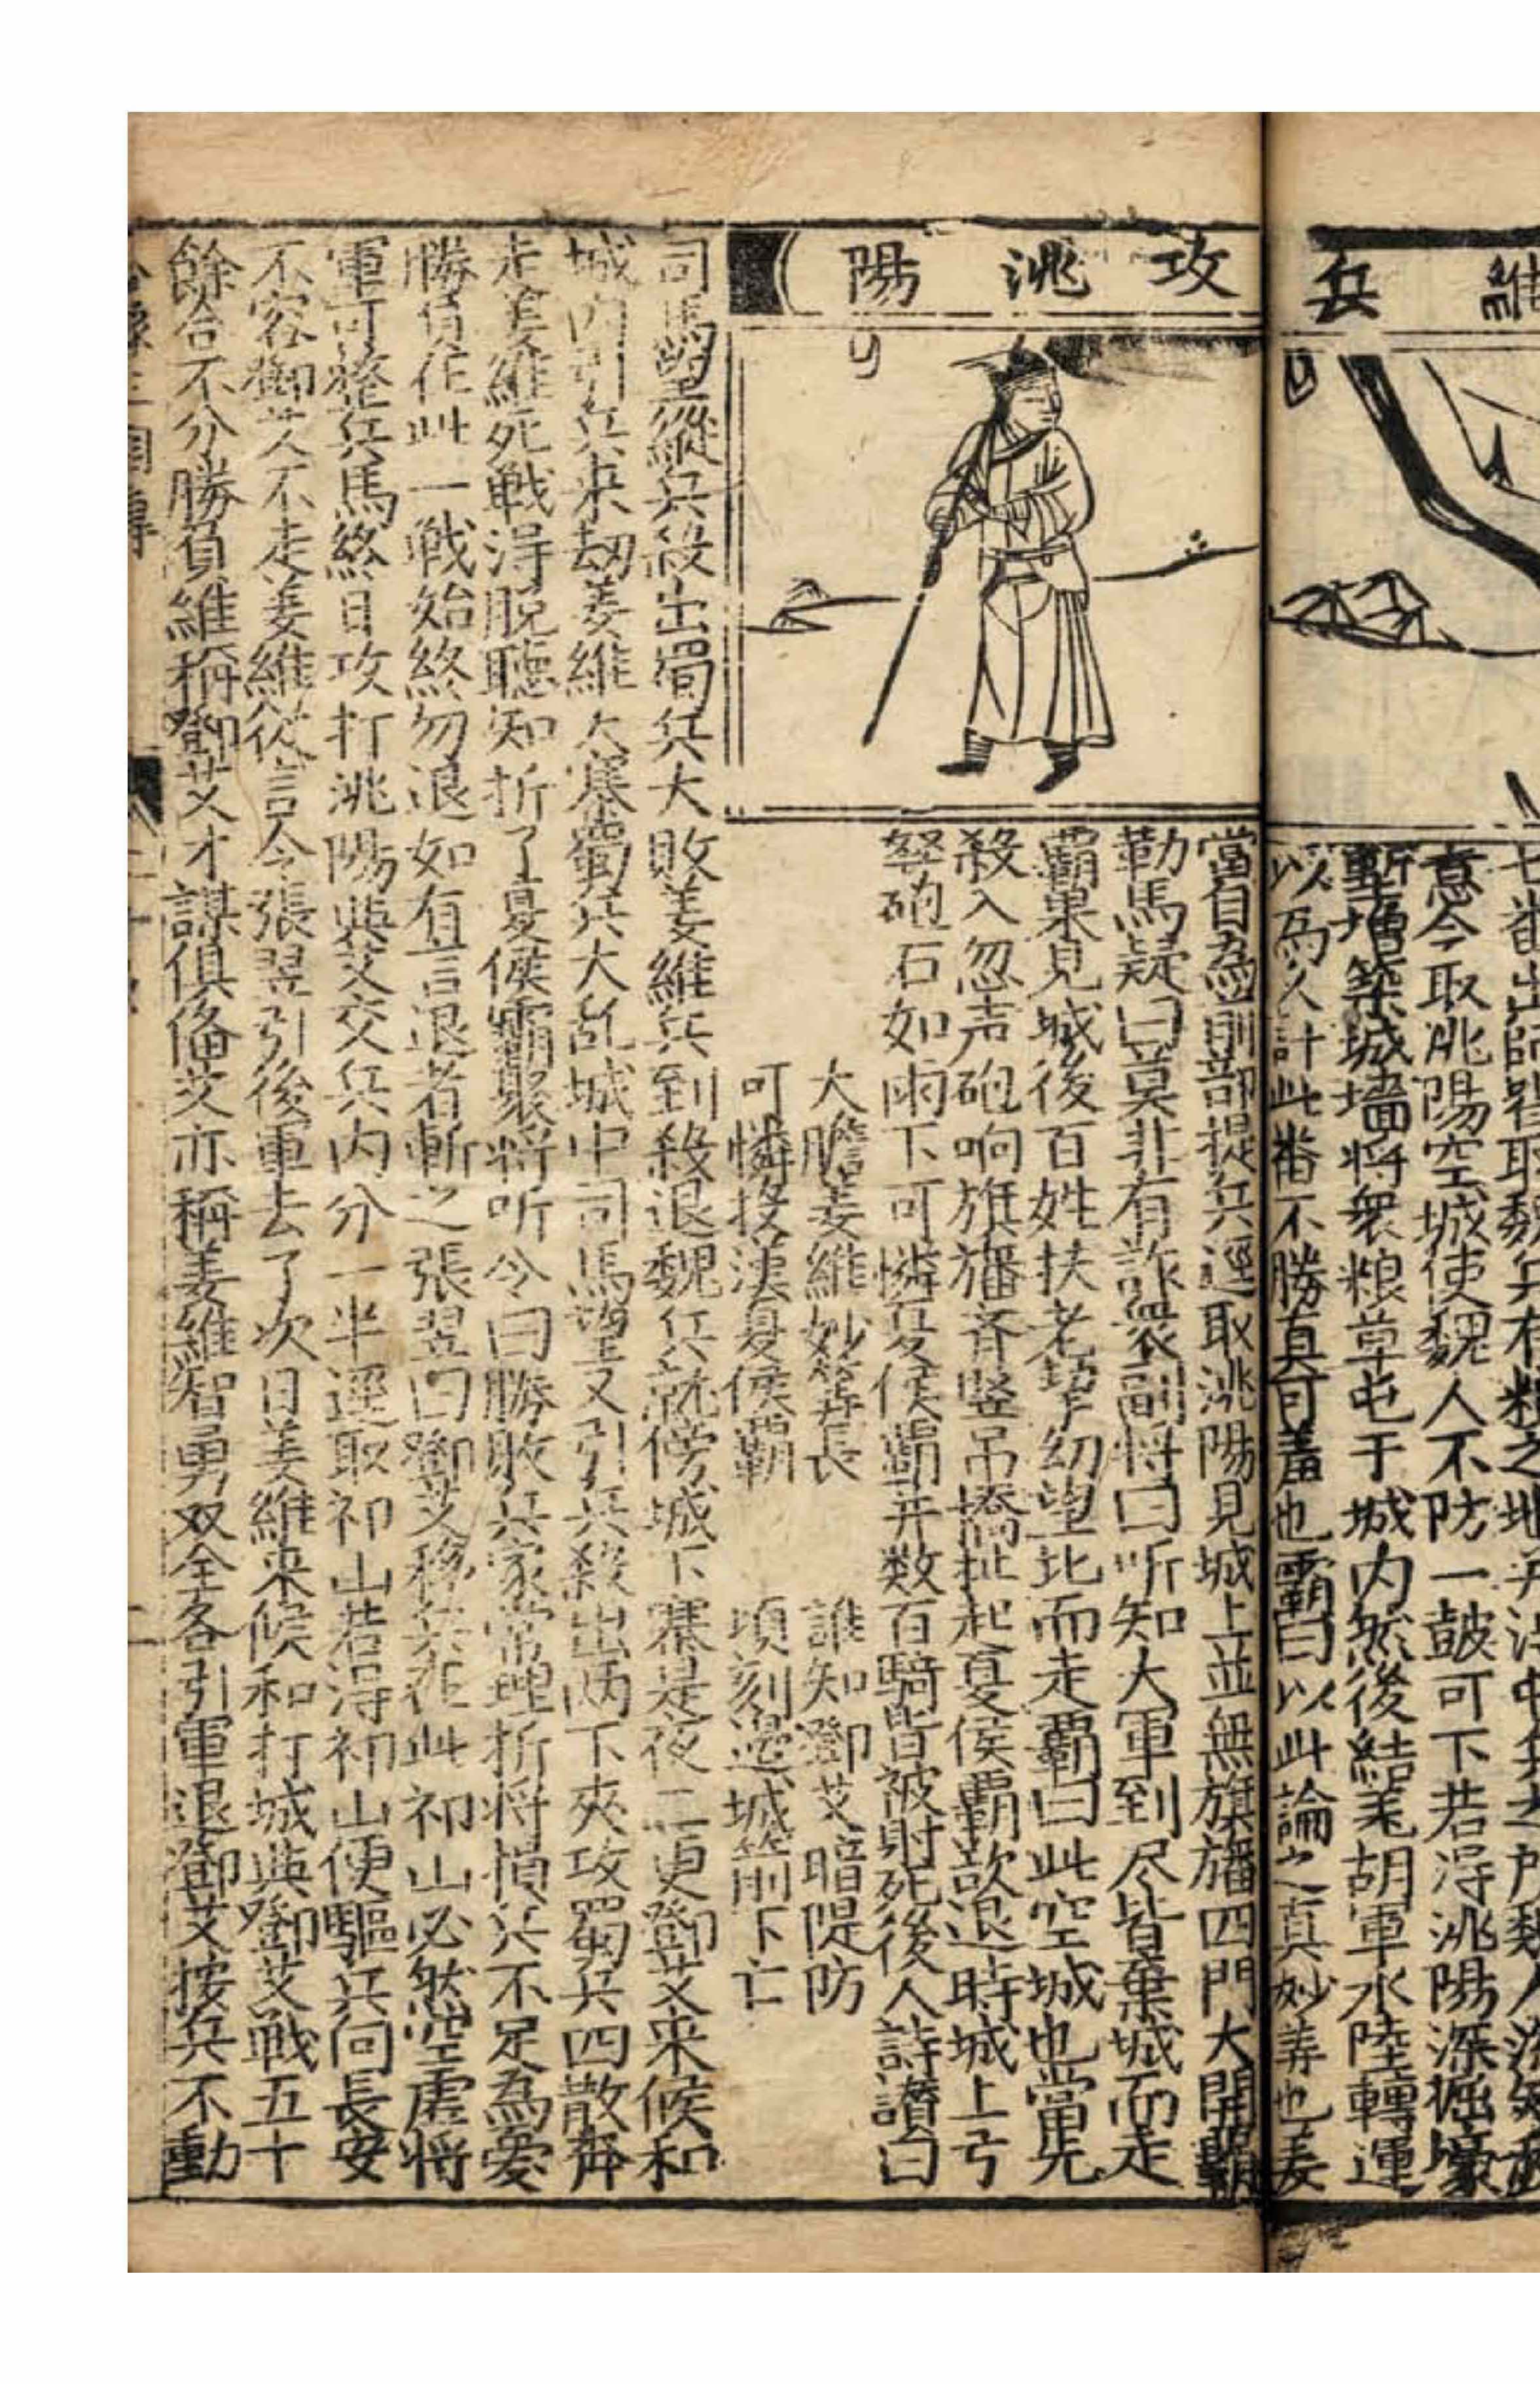 維兵
七番出師
意今取洮陽空城使魏人不防一鼓可下若得洮陽深掘壕
塹增築城墻将衆粮草屯于城内然後結羌胡軍水陸轉運
以為久計此番不勝真可羞也霸曰以此論之真妙筭也姜
攻洮陽
當自為前部提兵逕取洮陽見城上並無旗旛四門大開霸
勒馬疑曰莫非有詐衆副将曰听知大軍到尽皆棄城而走
霸果見城後百姓扶老挈幼望北而走霸曰此空城也當先
殺入忽声砲响旗旛斉竖吊橋扯起夏侯霸欲退時城上弓
弩砲石如雨下可憐夏侯霸并数百騎皆被射死後人詩讃曰
大膽姜維妙筭長 誰知鄧艾暗隄防
可憐投漢夏侯霸 頃刻邊城箭下亡
司馬望縱兵殺出蜀兵大敗姜維兵到殺退魏兵就傍城下寨是夜二更鄧艾来候和
城内引兵来刼姜維大寨蜀兵大乱城中司馬望又引兵殺出两下夾攻蜀兵四散奔
走姜維死戦得脱聴知折了夏侯霸衆将听令曰勝敗兵家常理折将損兵不足為憂
勝負在此一戦始終勿退如有言退者斬之張翌曰鄧艾移兵在此祁山必然空虚将
軍可整兵馬終日攻打洮陽與艾交兵内分一半逕取祁山若得祁山便驅兵向長安
不容鄧艾不走姜維従言令張翌引後軍去了次日姜維来候和打城與鄧艾戦五十
餘合不分勝負維稱鄧艾才謀俱俻艾亦稱姜維智勇双全各引軍退鄧艾按兵不動
三國傳